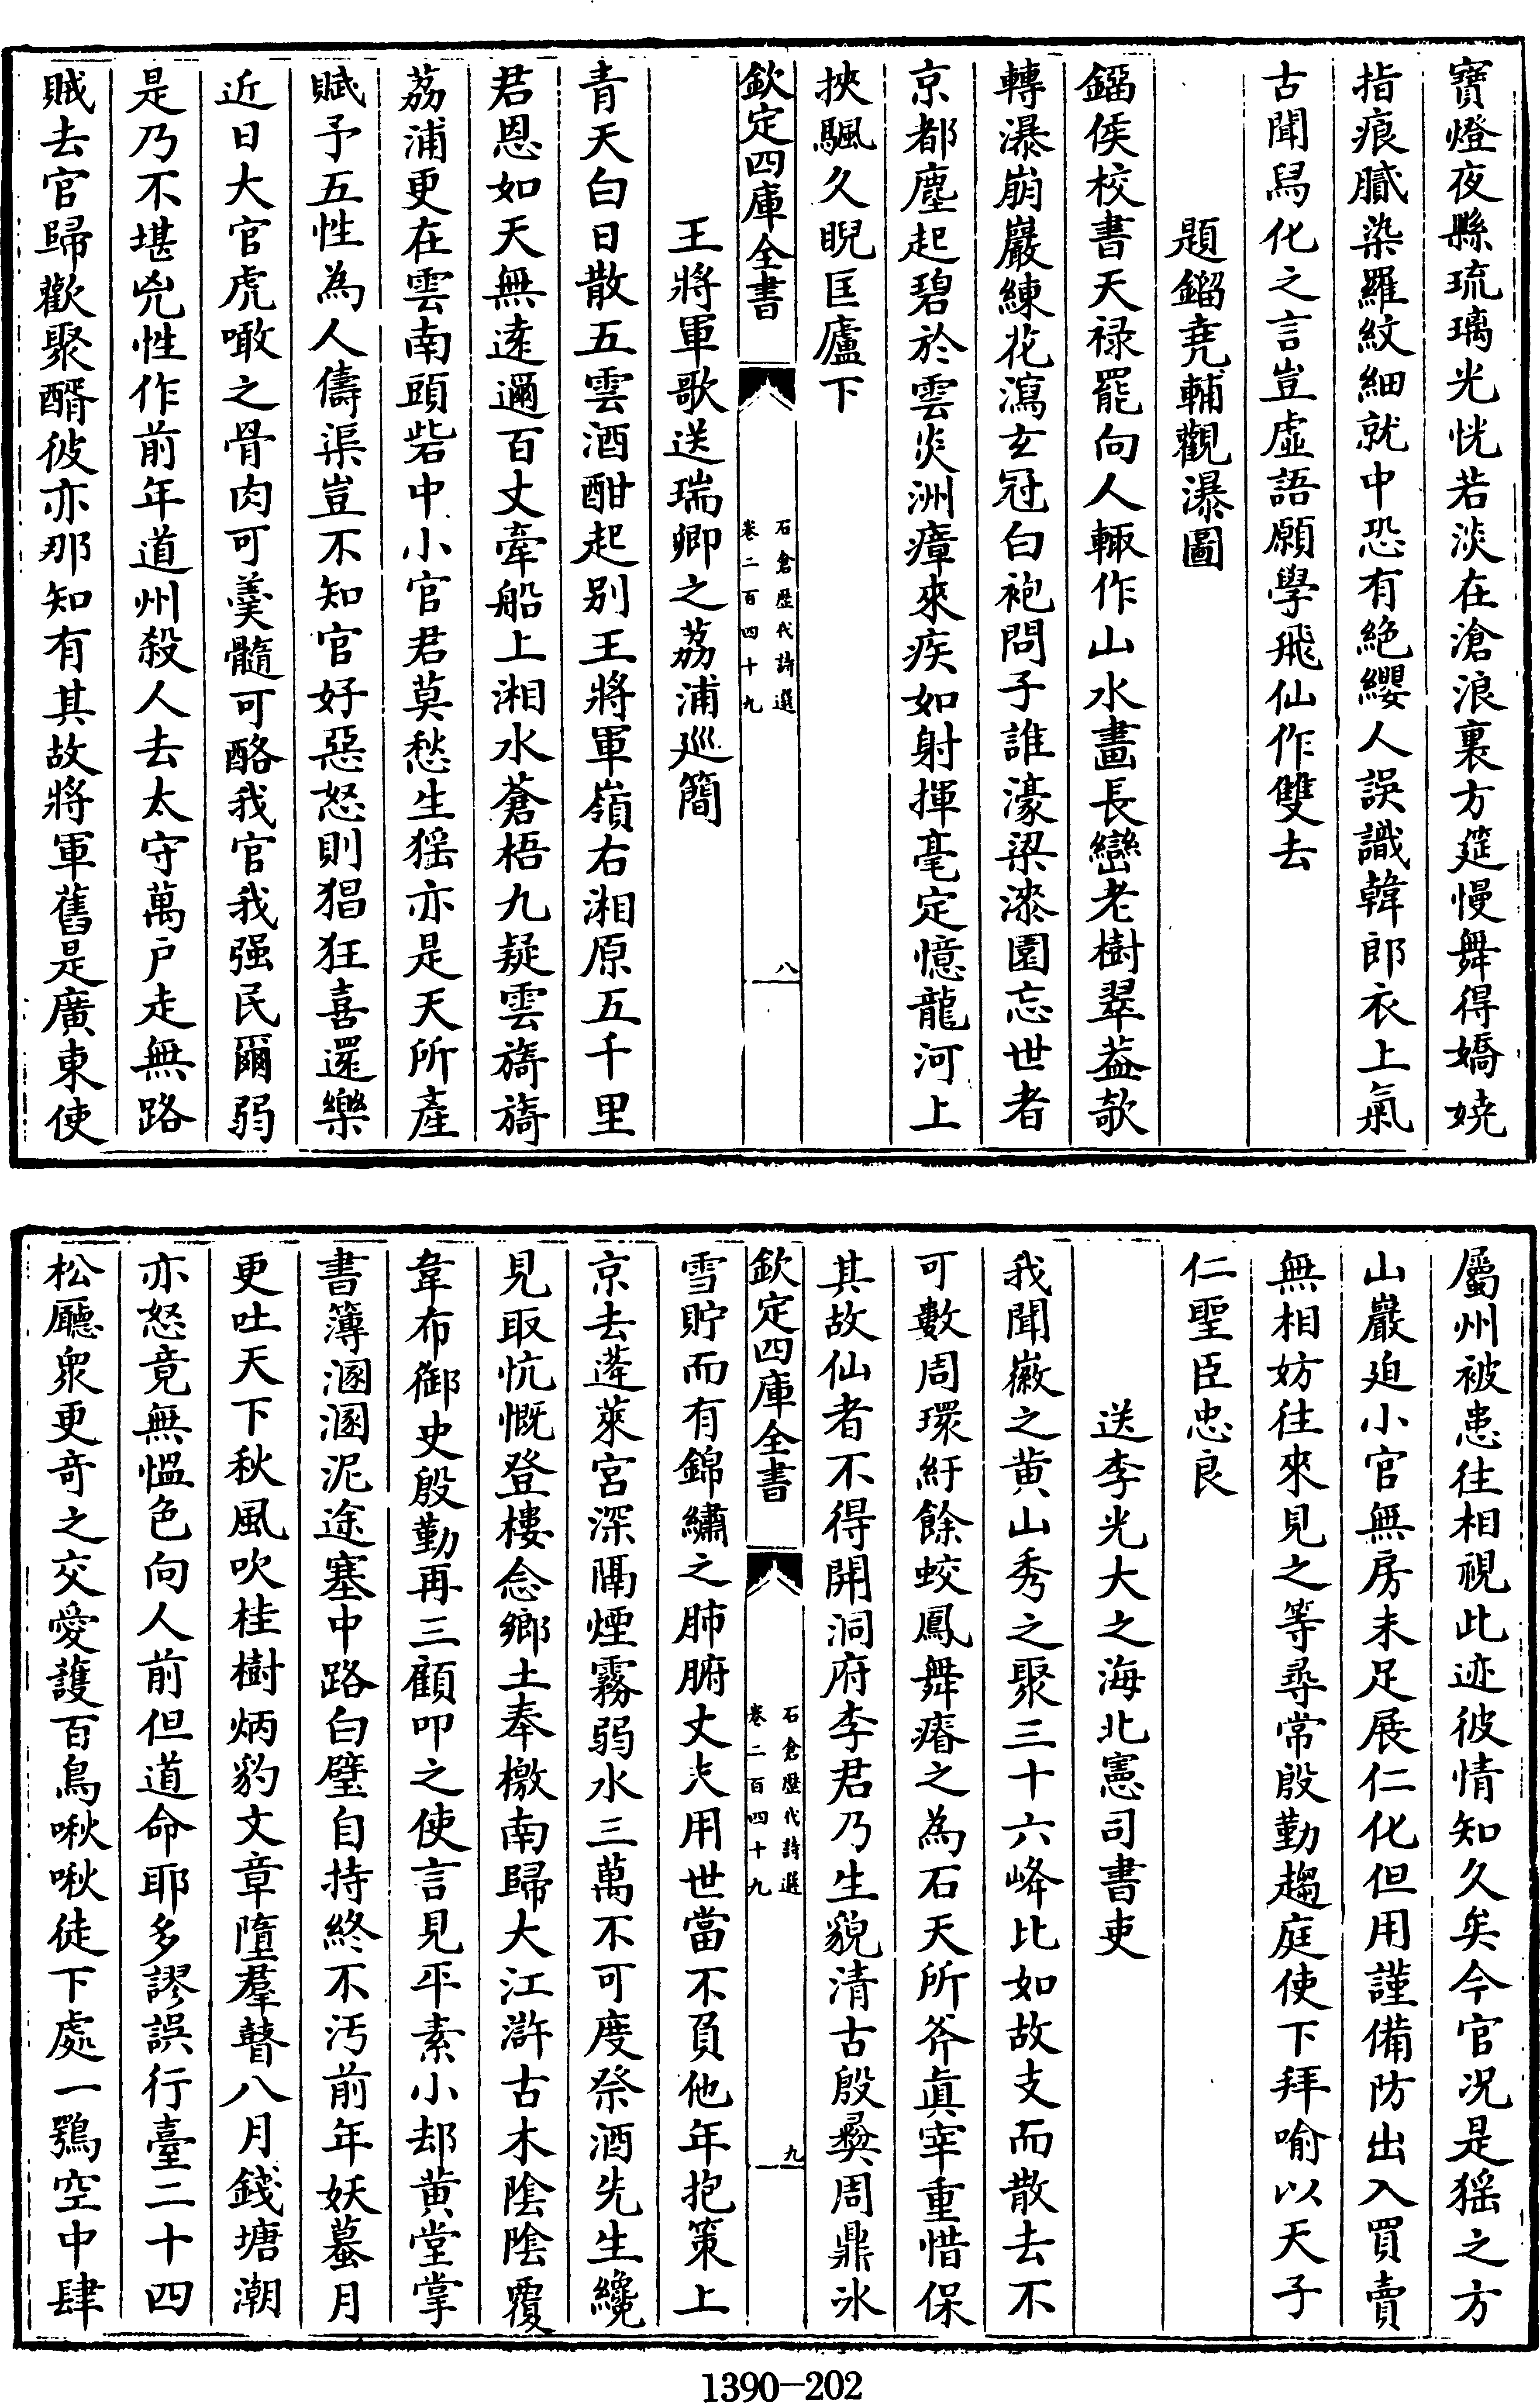 寶燈夜縣琉璃光恍若淡在滄浪裏方筵慢舞得嬌嬈
指痕膩染羅紋細就中恐有絶纓人誤識韓郎衣上氣
古聞舄化之言豈虛語願學飛仙作雙去
題鎦堯輔觀瀑圖
鎦侯校書天禄罷向人輙作山水畫長巒老樹翠葢欹
轉瀑崩巖練花瀉玄冠白袍問子誰濠梁漆園忘世者
京都塵起碧於雲炎洲瘴來疾如射揮毫定憶龍河上
挾颿久睨匡廬下
欽定四庫全書
石倉歴代詩選
卷二百四十九
八
王將軍歌送瑞卿之荔浦廵簡
青天白日散五雲酒酣起别王將軍嶺右湘原五千里
君恩如天無逺邇百丈牽船上湘水蒼梧九疑雲旖旖
荔浦更在雲南頭砦中小官君莫愁生猺亦是天所產
賦予五性為人儔渠豈不知官好惡怒則猖狂喜還樂
近日大官虎噉之骨肉可羮髓可酪我官我强民爾弱
是乃不堪兇性作前年道州殺人去太守萬户走無路
賊去官歸歡聚醑彼亦那知有其故將軍舊是廣東使
屬州被患往相視此迹彼情知久矣今官况是猺之方
山巖廹小官無房未足展仁化但用謹備防出入買賣
無相妨往來見之等尋常殷勤趨庭使下拜喻以天子
仁聖臣忠良
送李光大之海北憲司書吏
我聞徽之黄山秀之聚三十六峰比如故支而散去不
可數周環紆餘蛟鳳舞瘠之為石天所斧真宰重惜保
其故仙者不得開洞府李君乃生貌清古殷彛周鼎氷
欽定四庫全書
石倉歴代詩選
卷二百四十九
九
雪貯而有錦繡之肺腑丈夫用世當不負他年抱策上
京去蓬萊宮深隔煙霧弱水三萬不可度祭酒先生纔
見取忼慨登樓念鄉土奉檄南歸大江滸古木陰陰覆
韋布御史殷勤再三顧叩之使言見平素小却黄堂掌
書簿溷溷泥途塞中路白璧自持終不汚前年妖蟇月
更吐天下秋風吹桂樹炳豹文章墮羣瞽八月錢塘潮
亦怒竟無慍色向人前但道命耶多謬誤行臺二十四
松廳衆更竒之交愛護百鳥啾啾徒下處一鶚空中肆
1390—202